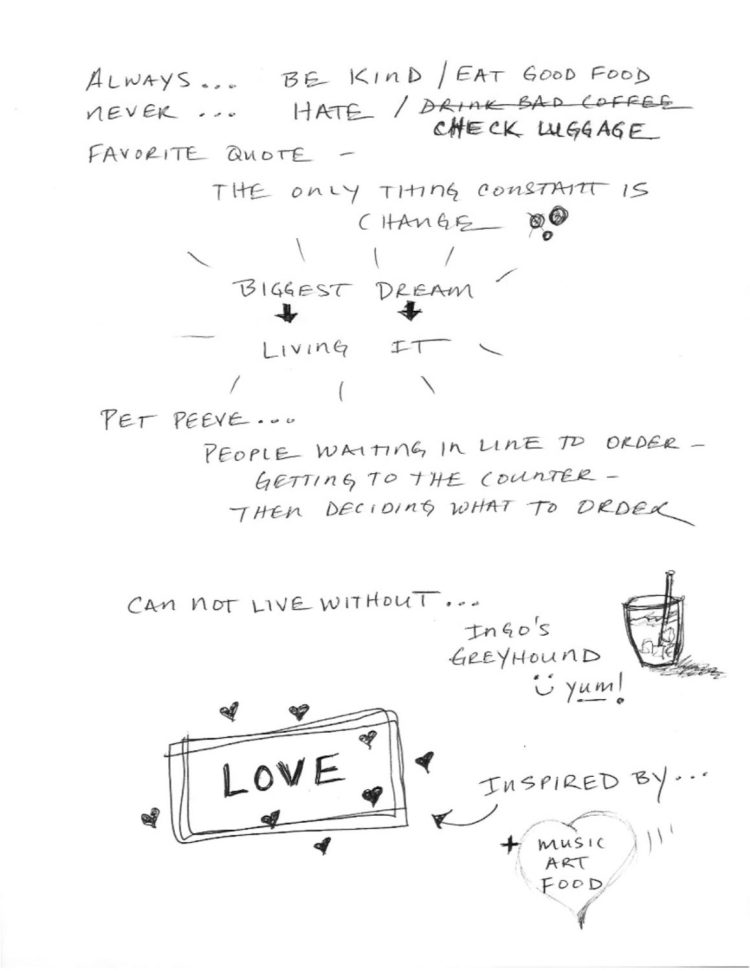 ALWAYS... BE KIND / EAT GOOD FOOD
NEVER ... HATE / DRINK BAD COFFEE
CHECK LUGGAGE
FAVORITE QUOTE -
THE ONLY THING CONSTANT IS
CHANGE
BIGGEST DREAM
LIVING IT
PET PEEVE...
PEOPLE WAITING IN LINE TO ORDER -
GETTING TO THE COUNTER -
THEN DECIDING WHAT TO ORDER
CAN NOT LIVE WITHOUT...
INGO'S
GREYHOUND
yum!
LOVE
INSPIRED BY...
+ MUSIC
ART
FOOD